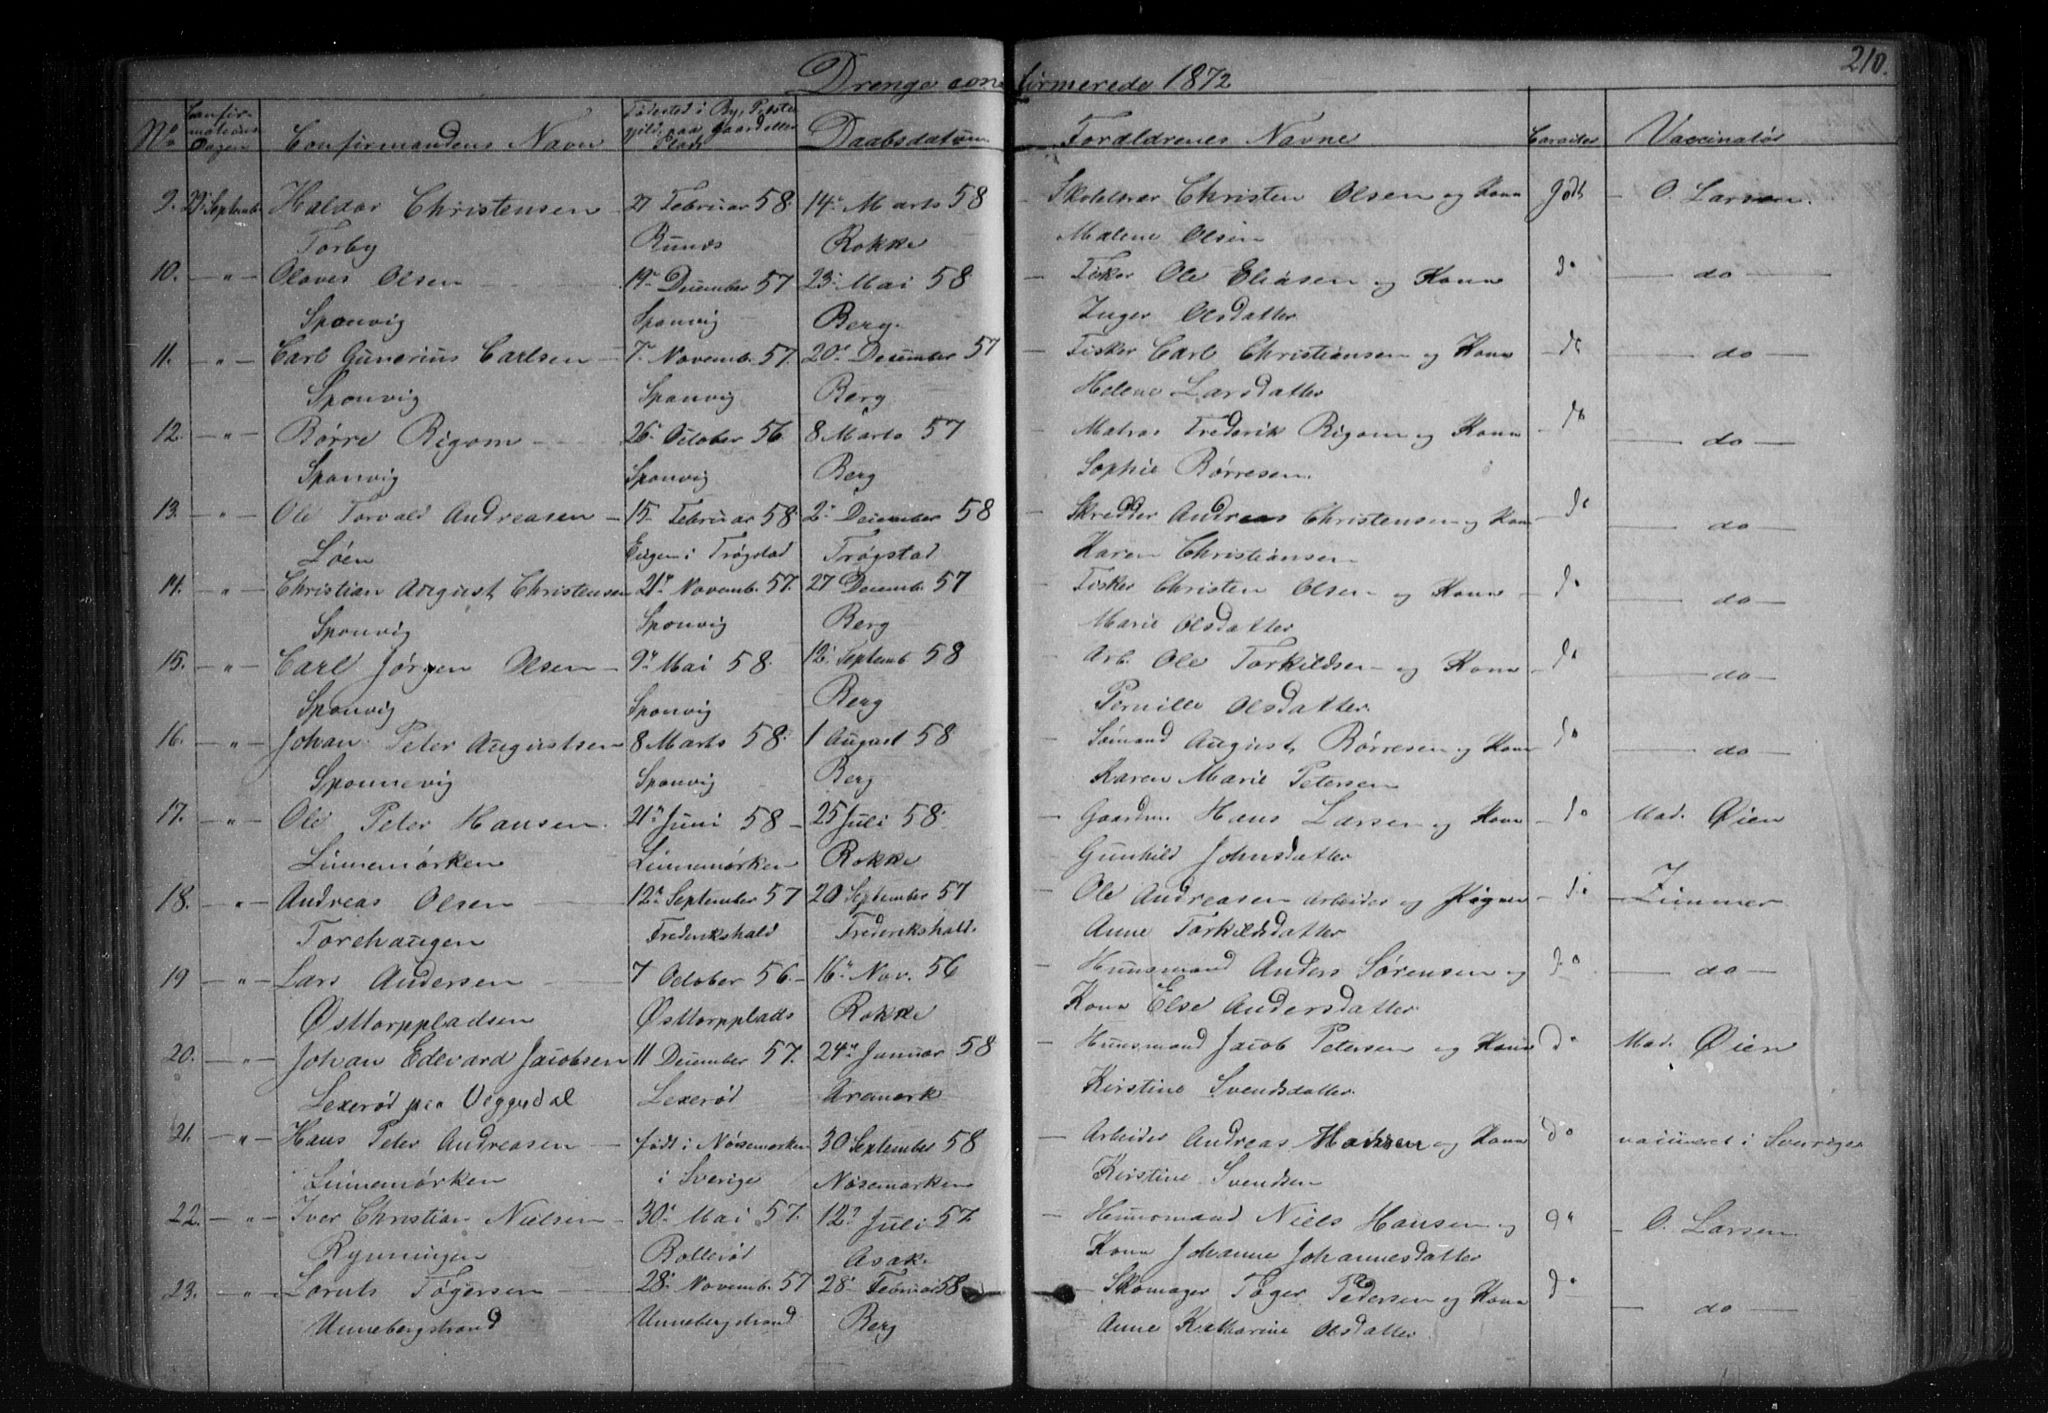 210.
Drenge confirmerede 1872
No Confirmations Dagen Confirmandens Navn Fødested i By, Præstegjeld, paa Gaard eller Plads Daabsdatum Forældrenes Navne Caracter Vaccinatør
9. 29 Septemb. Haldor Christensen 27 Februar 58 14de Marts 58 Skolelærer Christen Olsen og Kone godt O. Larsen.
Torby Runds Rokke Malene Olsen
10. — " — Oloves Olsen 19de December 57 23. Mai 58 — Fisker Ole Eliasen og Kone do — do —
Sponvig Sponvig Berg. Inger Olsdatter
11. — " — Carl Gunerius Carlsen — 7de Novemb. 57. 20de December 57 — Fisker Carl Christiansen og Kone — do — do —
Sponvig Sponvig Berg Helene Larsdatter
12. — " — Børre Rigom 26. October 56. 8 Marts 57 — Matros Frederik Rigom og Kone — do — do —
Sponvig Sponvig Berg Sophie Børresen.
13. — " — Ole Torvald Andreasen — 15 Februar 58 2. December 58 — Skredder Andreas Christensen og Kone — do — do —
Løen i Trøgstad Trøgstad Karen Christiansen
14. — " — Christian August Christensen 21de Novemb. 57. 27 Decemb. 57 — Fisker Christen Olsen og Kone — do — do —
Sponvig Sponvig Berg Marie Olsdatter
15. — " — Carl Jørgen Olsen — 9de Mai 58. 12. Septemb 58 — Arb. Ole Torkildsen og Kone — do — do —
Sponvig Sponvig Berg Pernille Olsdatter.
16. — " — Johan Peter Augustsen 8 Marts 58. 1 August 58 — Sømand August Børresen og Kone do — do —
Sponnevig Sponvig Berg Karen Marie Petersen
17. — " — Ole Peter Hansen. 21de Juni 58 — 25 Juli 58. — Gaardm. Hans Larsen og Kone — do Mad. Øien
Linnemørken Linnemørken Rokke Gunhild Johnsdatter
18. — " — Andreas Olsen 12te September 57 20 September 57 — Ole Andreasen Arbeider og Pigen — do Zimmer
Torehaugen Frederikshald Frederikshald. Anne Torkildsdatter
19 — " — Lars Andersen 7 October 56 — 16de Nov. 56 — Huusmand Anders Sørensen og do — do —
Østtorppladsen Østtorpplads Rokke Kone Else Andersdatter
20. — " — Johan Edevard Jacobsen 11 December 57. 24de Januar 58 — Huusmand Jacob Petersen og Kone do Mad. Øien
Lexerød paa Viggudal Lexerød Aremark Kirstine Svendsdatter.
21. — " — Hans Peter Andreasen — født i Nøsemarken 30 September 58 — Arbeider Andreas Hansen og Kone do vaccineret i Sverige
Linnemørken i Sverige Nøsemarken Kirstine Svendsen
22. — " — Iver Christian Nielsen — 30. Mai 57. 12te Juli 57 — Huusmand Niels Hansen og do O. Larsen
Rynningen Bollerød Asak. Kone Johanne Johannesdatter
23. — " — Lorents Tøgersen 28. Novemb. 57 28. Februar 58 — Skomager Tøger Pedersen og Kone do — do —
Unnebergstrand Unnebergstrand Berg Anne Katharine Olsdatter.